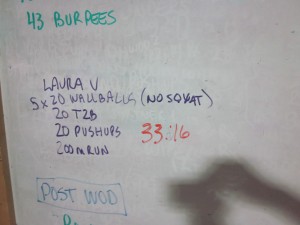 43 BURPEES
LAURA V
5x20 WALLBALLS (NO SQUAT)
20 T2B
20 PUSHUPS 33:16
200M RUN
POST WOD